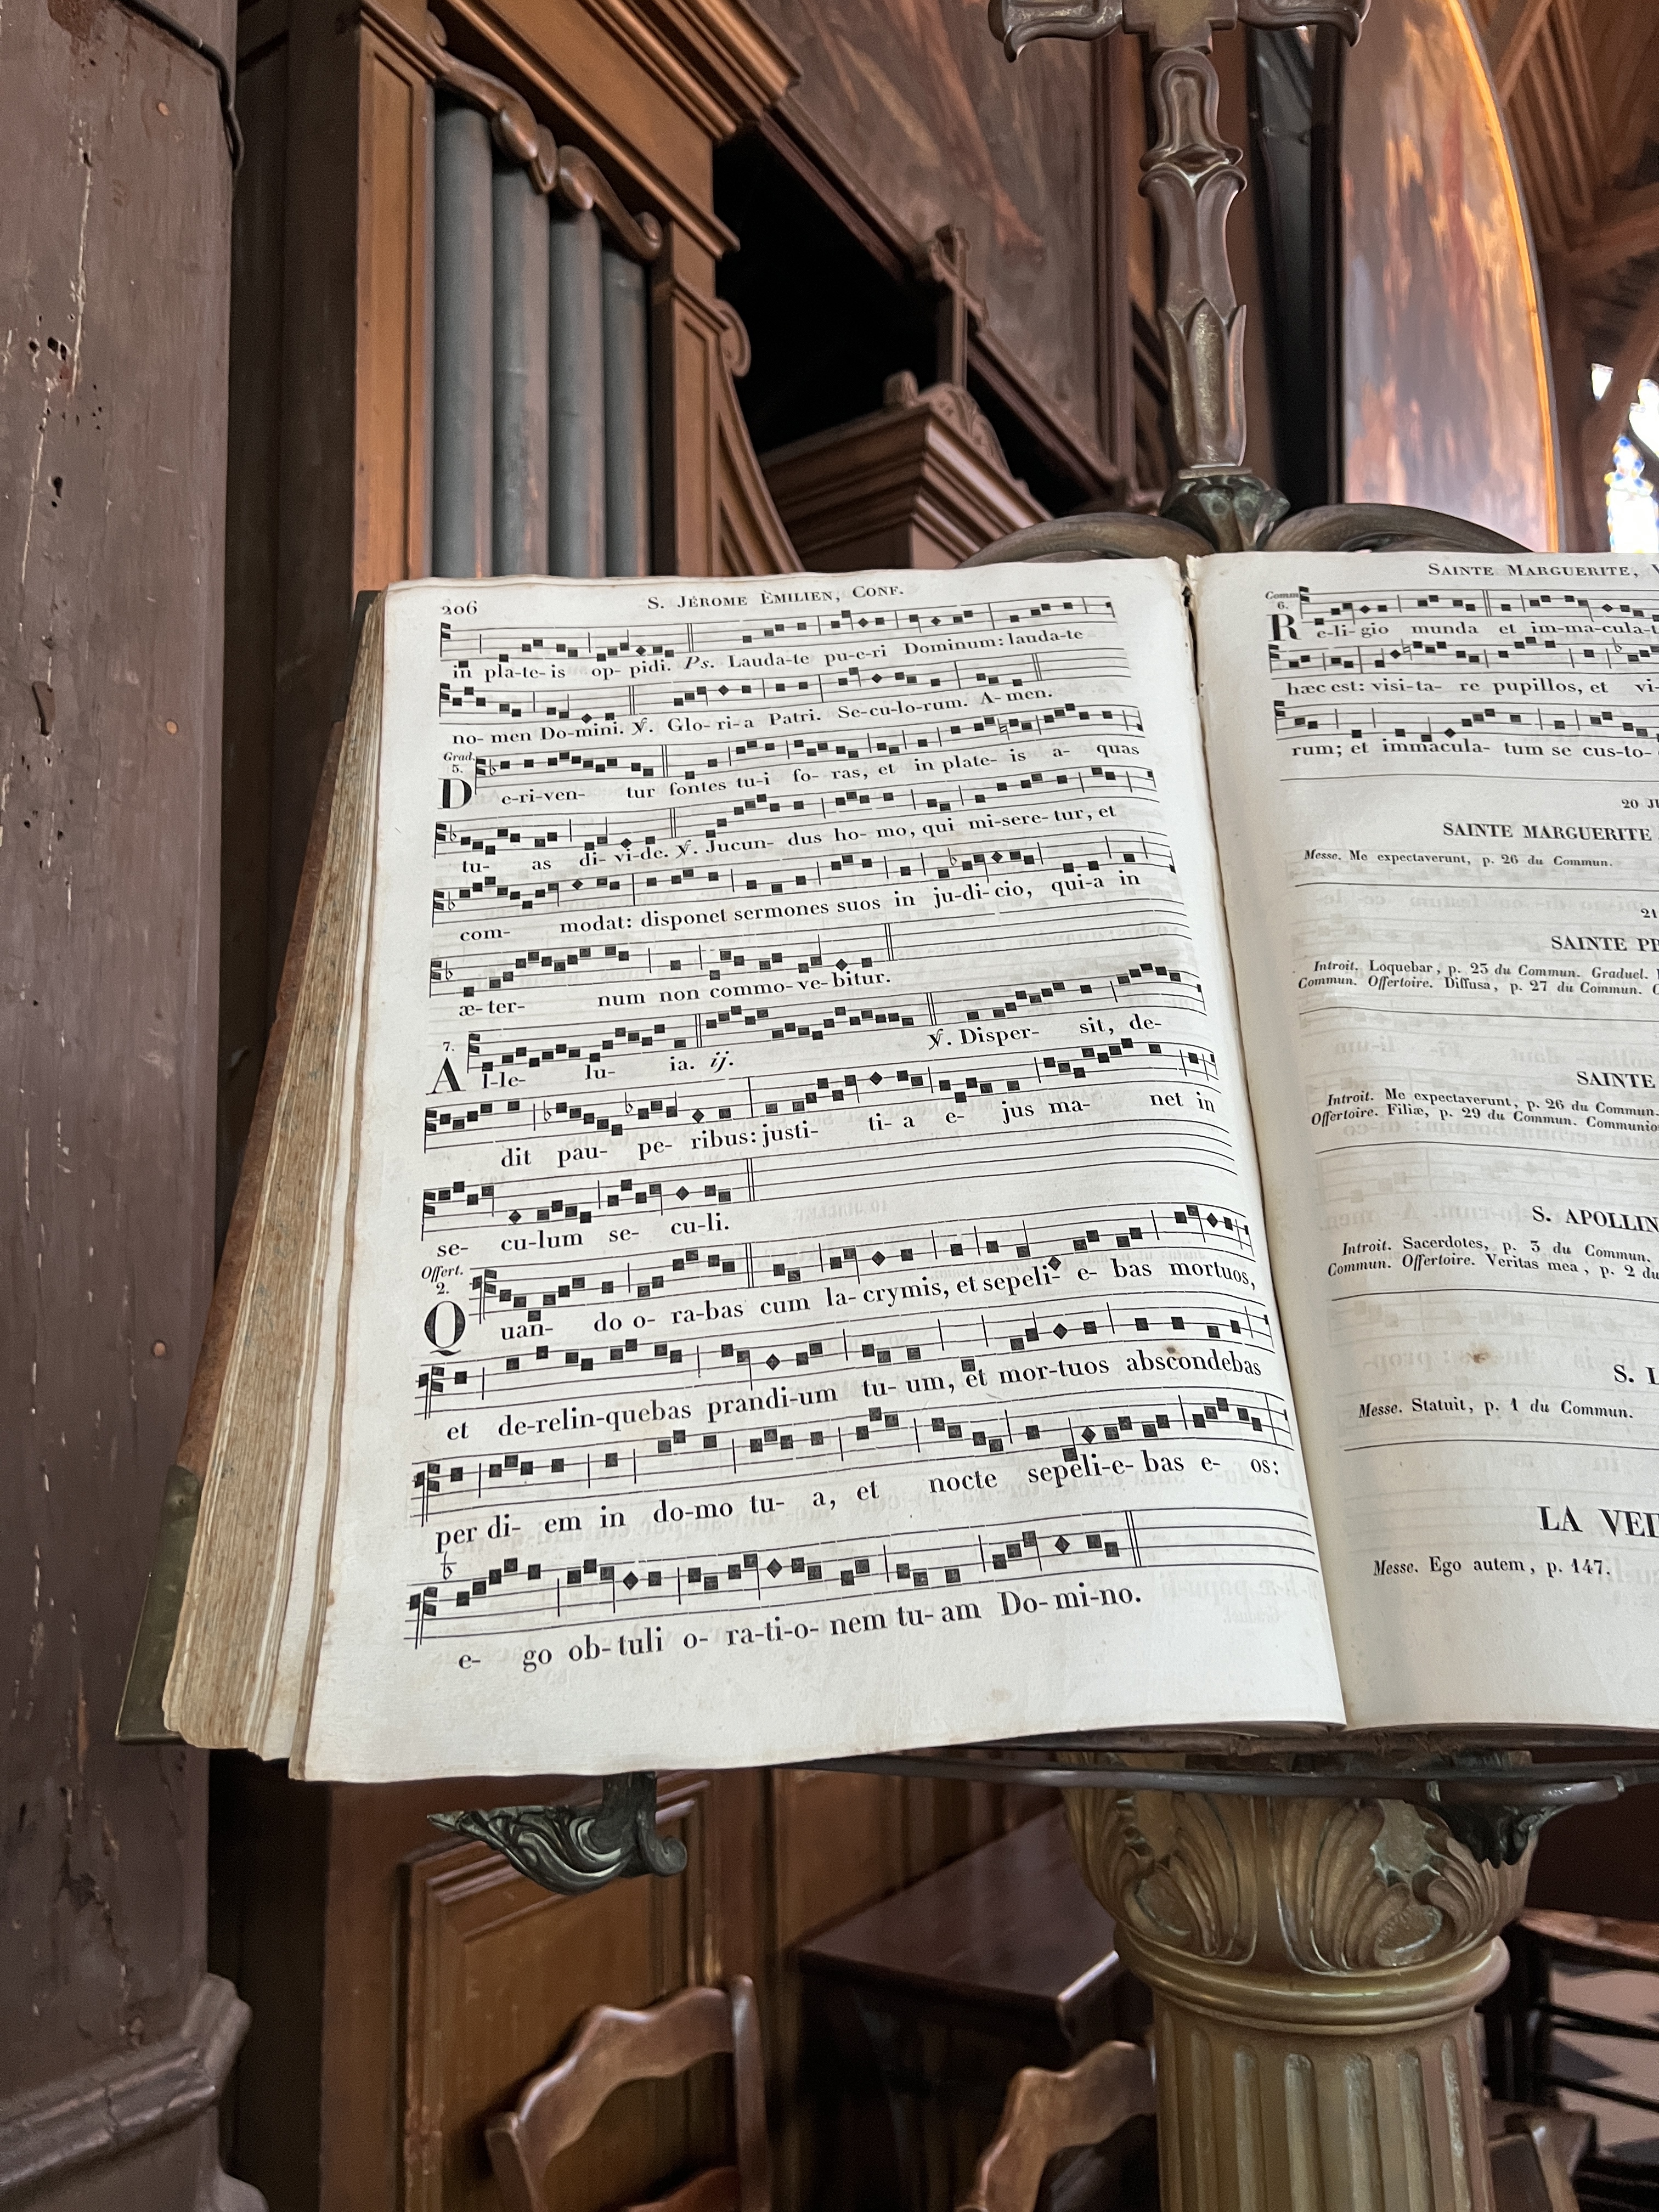 206
S. JÉROME ÉMILIEN, CONF.
in pla-te-is op- pidi. Ps. Lauda-te pu-e-ri Dominum: lauda-te
no- men Do-mini. ℣. Glo- ri-a Patri. Se-cu-lo-rum. A- men.
Grad.
5.
De-ri-ven- tur fontes tu-i fo- ras, et in plate- is a- quas
tu- as di- vi-de. ℣. Jucun- dus ho- mo, qui mi-sere- tur, et
com- modat: disponet sermones suos in ju-di-cio, qui-a in
æ-ter- num non commo-ve-bitur.
7.
Al-le- lu- ia. ij. ℣. Disper- sit, de-
dit pau- pe- ribus: justi- ti- a e- jus ma- net in
se- cu-lum se- cu-li.
Offert.
2.
Quan- do o- ra-bas cum la-crymis, et sepeli- e- bas mortuos,
et de-relin-quebas prandi-um tu- um, et mor-tuos abscondebas
per di- em in do-mo tu- a, et nocte sepeli-e- bas e- os:
e- go ob-tuli o- ra-ti-o- nem tu- am Do-mi-no.
SAINTE MARGUERITE,
Comm.
6.
Re-li-gio munda et im-ma-cula-t
hæc est: visi-ta- re pupillos, et vi-
rum; et immacula- tum se cus-to-
20
SAINTE MARGUERITE
Messe. Me expectaverunt, p. 26 du Commun.
21
SAINTE
Introit. Loquebar, p. 25 du Commun. Graduel.
Commun. Offertoire. Diffusa, p. 27 du Commun.
SAINTE
Introit. Me expectaverunt, p. 26 du Commun.
Offertoire. Filiæ, p. 29 du Commun. Communio
S. APOLLIN
Introit. Sacerdotes, p. 3 du Commun.
Commun. Offertoire. Veritas mea, p. 2 du
S. L
Messe. Statuit, p. 1 du Commun.
LA
Messe. Ego autem, p. 147.